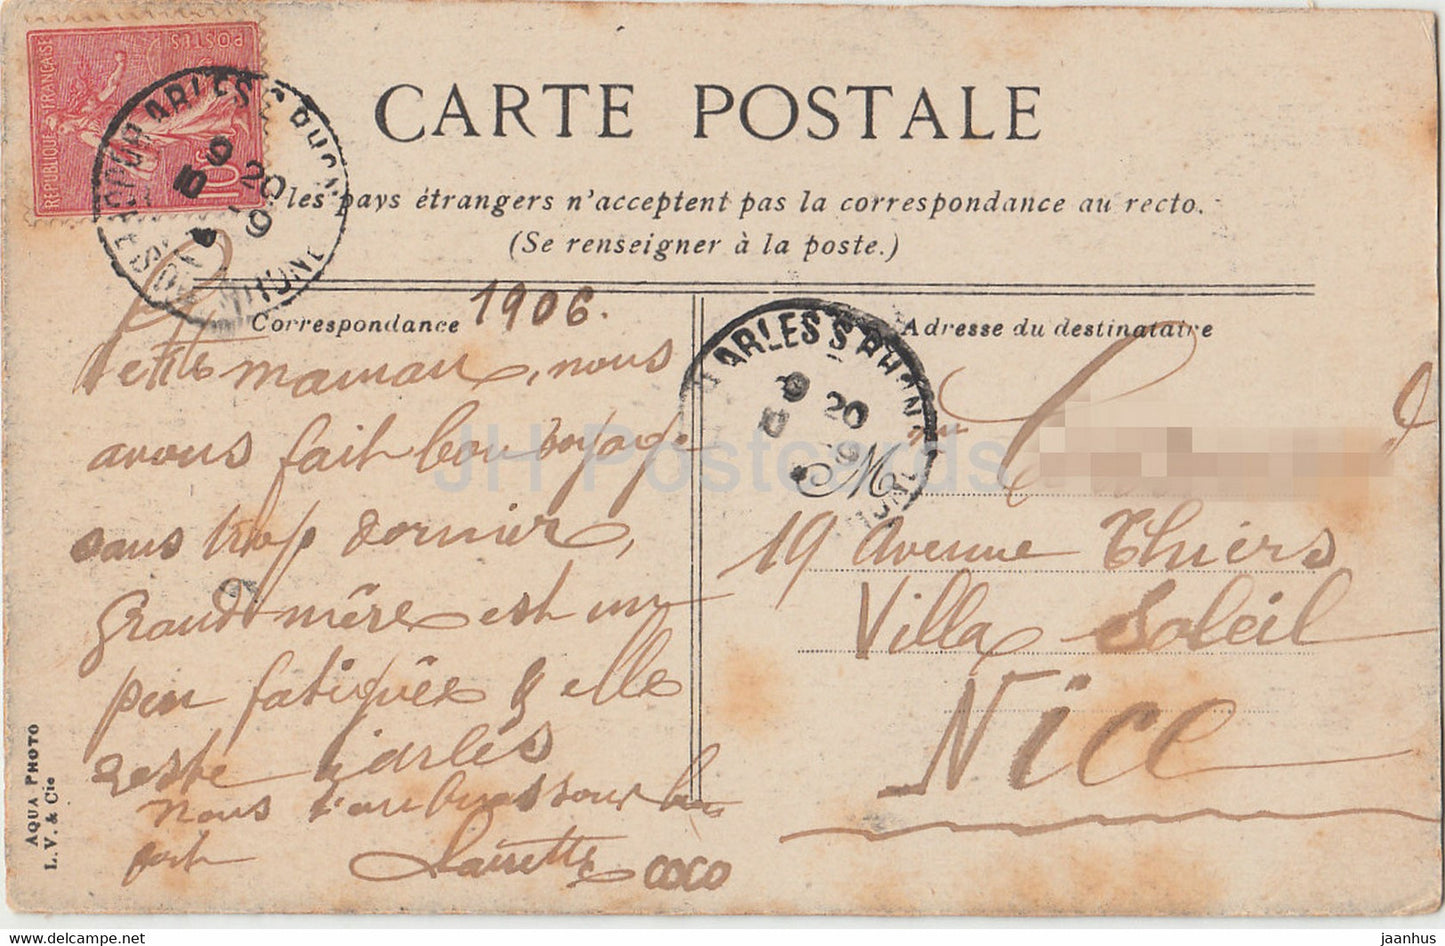 RÉPUBLIQUE FRANÇAISE
POSTES
10c
ARLES S RHONE
9
20
9
CARTE POSTALE
les pays étrangers n'acceptent pas la correspondance au recto.
(Se renseigner à la poste.)
Correspondance 1906.
Petite maman, nous
avons fait bon voyage
sans trop dormir,
Grand mère est un
peu fatiguée & elle
reste à arles
nous t'embrassons bien
fort
Laurette COCO
AQUA PHOTO
L. V. & Cie
Adresse du destinataire
ARLES S RHONE
9
20
M
19 Avenue Thiers
Villa Soleil
Nice
JH Postcards
www.delcampe.net
jaanhus